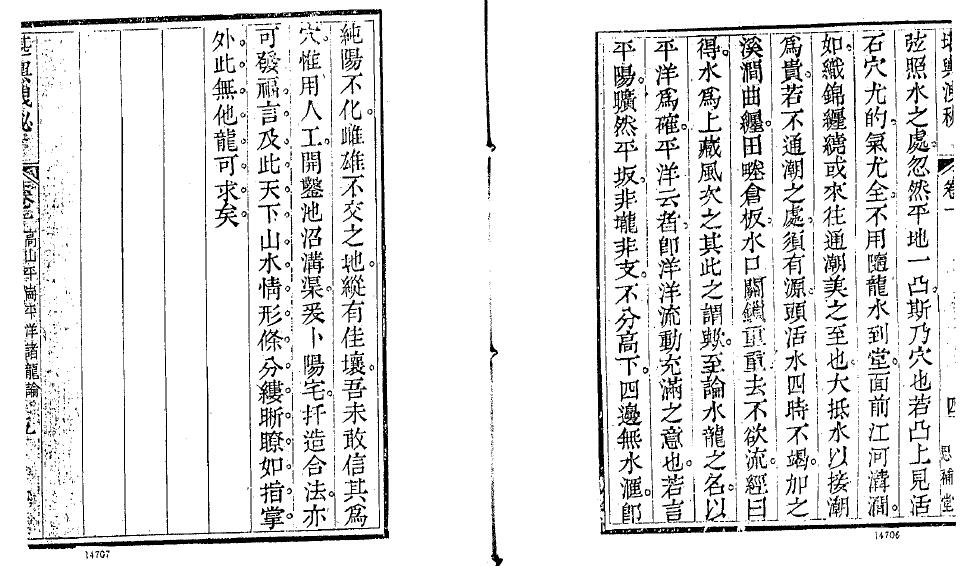 堪輿洩秘 卷一 四 思補堂
弦照水之處忽然平地一凸斯乃穴也若凸上見活
石穴尤的氣尤全不用隨龍水到堂面前江河溝澗
如織錦纏繞或來往通潮美之至也大抵水以接潮
為貴若不通潮之處須有源頭活水四時不竭加之
溪澗曲纒田塍倉板水口關鎖重重去不欲流經曰
得水爲上藏風次之其此之謂歟至論水龍之名以
平洋爲確平洋云者卽洋洋流動充滿之意也若言
平陽曠然平坂非壠非支不分高下四邊無水滙卽
純陽不化雌雄不交之地縱有佳壤吾未敢信其爲
穴惟用人工開鑿池沼溝渠爰卜陽宅扦造合法亦
可發福言及此天下山水情形條分縷晰瞭如指掌
外此無他龍可求矣
高山平崗平洋諸龍論
14707
14706